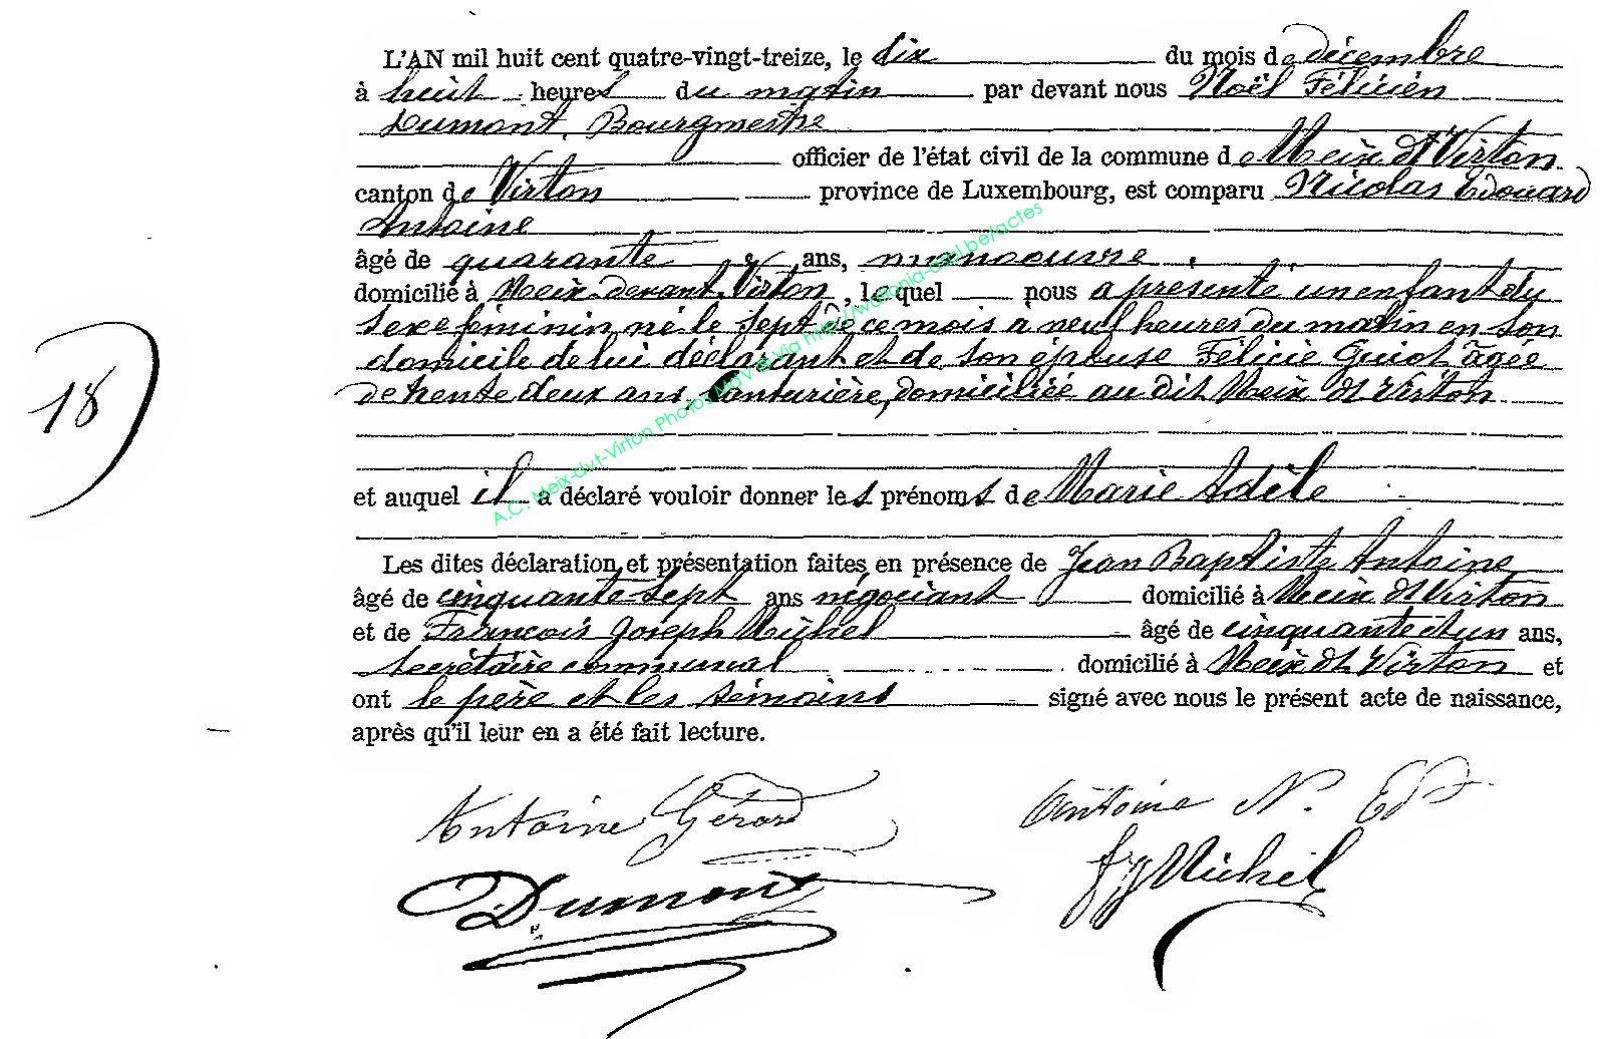 L'AN mil huit cent quatre-vingt-treize, le dix du mois de décembre
à huit heures du matin par devant nous Noël Félicien
Dumont, Bourgmestre
officier de l'état civil de la commune de Meix dt Virton
canton de Virton province de Luxembourg, est comparu Nicolas Edouard
Antoine
âgé de quarante ans, manoeuvre,
domicilié à Meix-devant-Virton, lequel nous a présenté un enfant du
sexe féminin né le sept de ce mois à neuf heures du matin en son
domicile de lui déclarant et de son épouse Félicie Guiot âgée
de trente deux ans, Couturière, domiciliée au dit Meix dt Virton
18
et auquel il a déclaré vouloir donner les prénoms de Marie Adèle
Les dites déclaration et présentation faites en présence de Jean Baptiste Antoine
âgé de cinquante sept ans négociant domicilié à Meix dt Virton
et de François Joseph Michel âgé de cinquante et un ans,
secrétaire communal domicilié à Meix dt Virton et
ont le père et les témoins signé avec nous le présent acte de naissance,
après qu'il leur en a été fait lecture.
Antoine Gérard Antoine N. Ed
Dumont fj Michel
A.C. Meix-dvt-Virton Photos